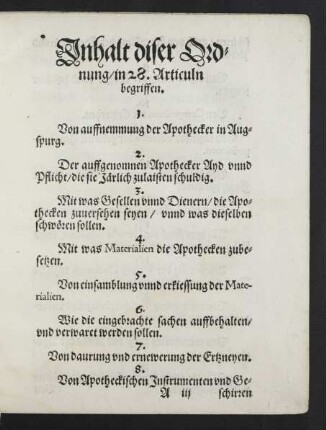 Inhalt diser Ord-
nung/ in 28. Articuln
begriffen.
1.
Von auffnemmung der Apothecker in Aug-
spurg.
2.
Der auffgenomnen Apothecker Ayd vnnd
Pflicht/ die sie Järlich zulaisten schuldig.
3.
Mit was Gesellen vnnd Dienern/ die Apo-
thecken zuuersehen seyen/ vnnd was dieselben
schwören sollen.
4.
Mit was Materialien die Apothecken zube-
setzen.
5.
Von einsamblung vnnd erkiessung der Mate-
rialien.
6.
Wie die eingebrachte sachen auffbehalten/
vnd verwaret werden sollen.
7.
Von daurung vnd ernewerung der Ertzneyen.
8.
Von Apotheckischen Instrumenten vnd Ge-
A iij schirren